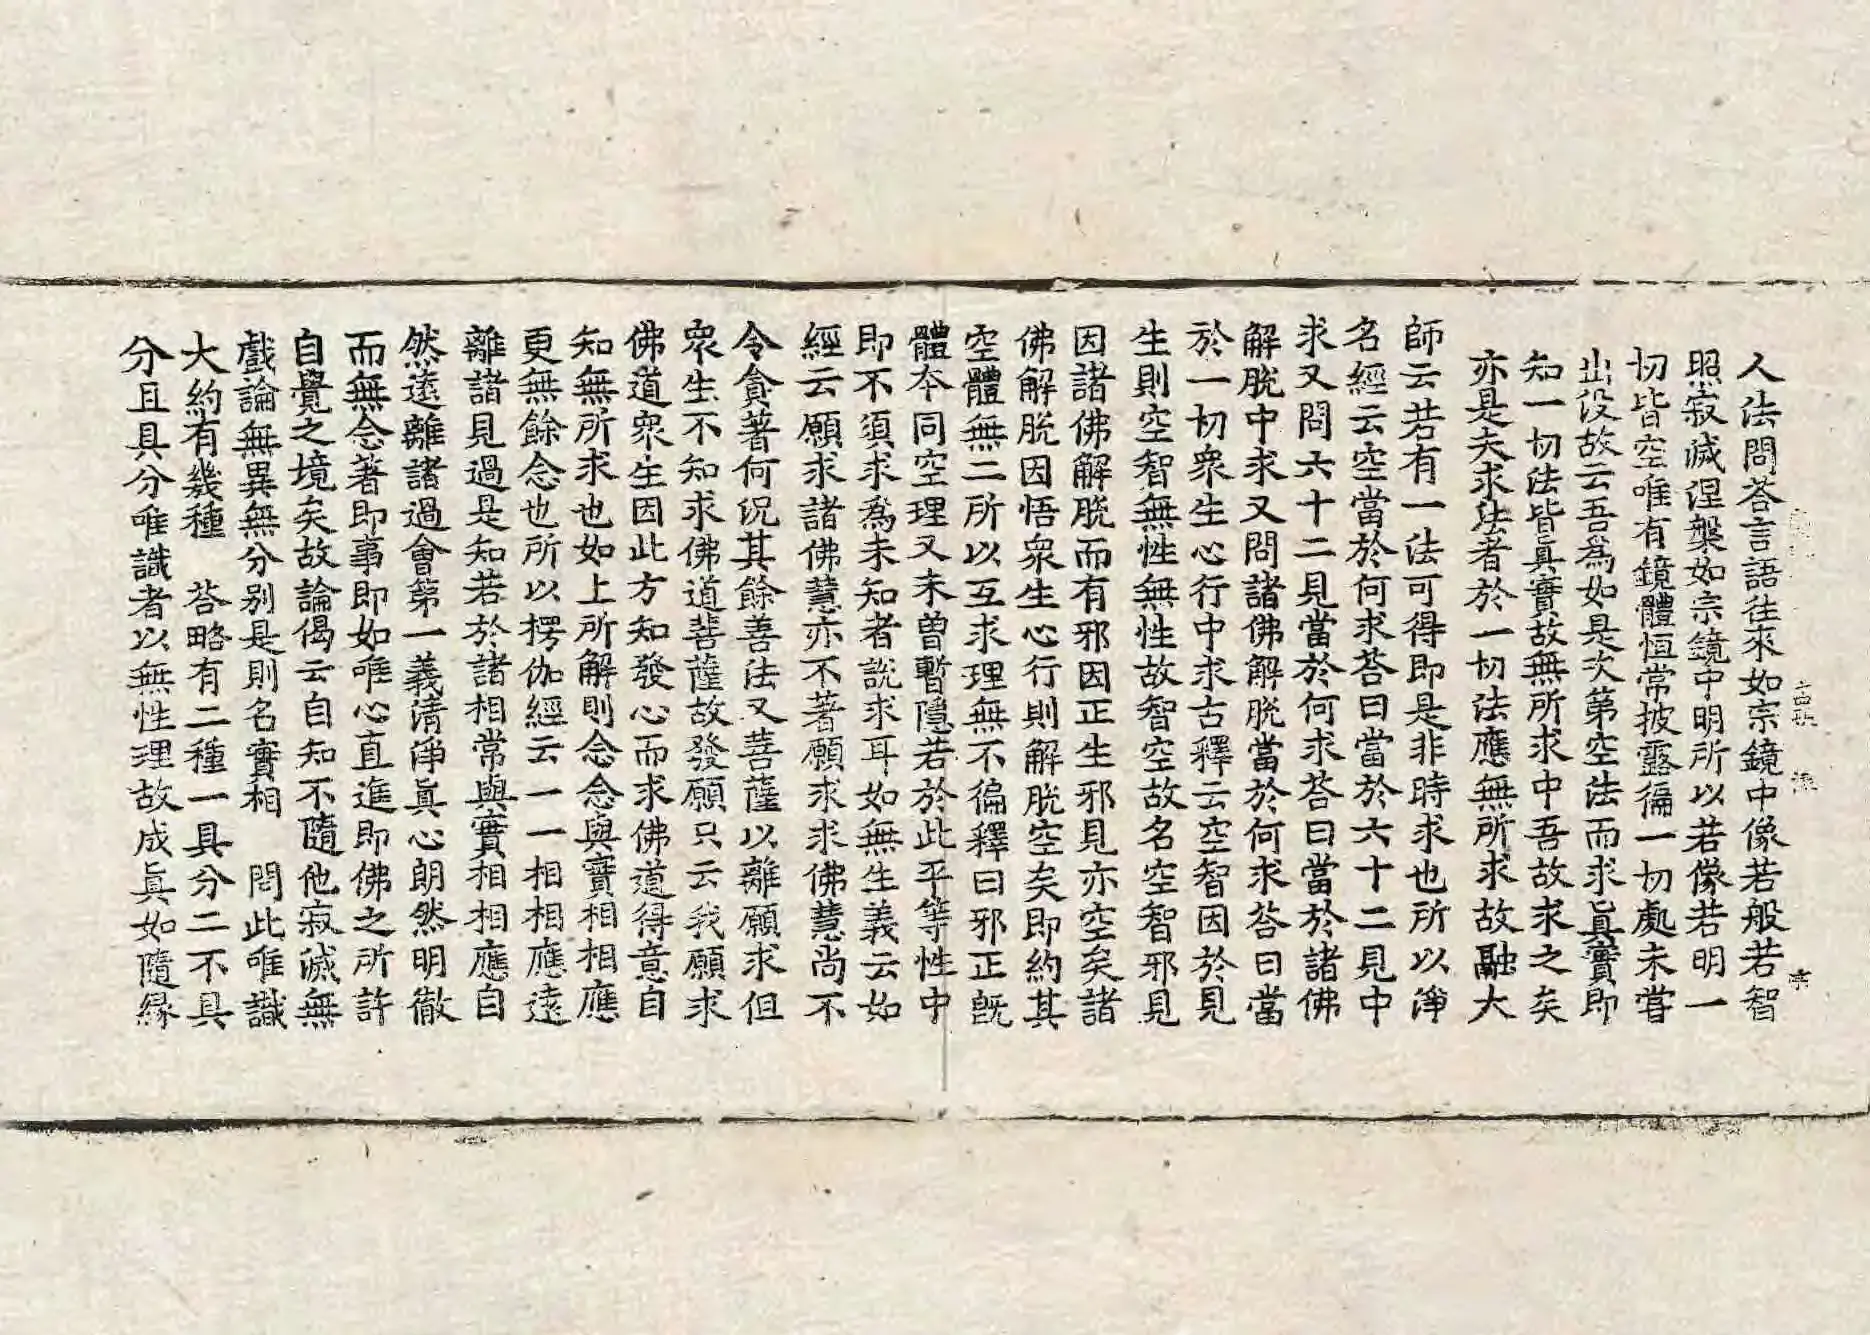 人法問荅言語往來如宗鏡中像若般若智
照寂滅涅槃如宗鏡中明所以若像若明一
切皆空唯有鏡體恒常披露徧一切處未甞
出沒故云吾爲如是次第空法而求眞實即
知一切法皆眞實故無所求中吾故求之矣
亦是夫求法者於一切法應無所求故融大
師云若有一法可得即是非時求也所以淨
名經云空當於何求荅曰當於六十二見中
求又問六十二見當於何求荅曰當於諸佛
解脫中求又問諸佛解脫當於何求荅曰當
於一切衆生心行中求古釋云空智因於見
生則空智無性無性故智空故名空智邪見
因諸佛解脫而有邪因正生邪見亦空矣諸
佛解脫因悟衆生心行則解脫空矣即約其
空體無二所以互求理無不徧釋曰邪正旣
體本同空理又未曾暫隱若於此平等性中
即不須求爲未知者說求耳如無生義云如
經云願求諸佛慧亦不著願求求佛慧尚不
令貪著何況其餘善法又菩薩以離願求但
衆生不知求佛道菩薩故發願只云我願求
佛道衆生因此方知發心而求佛道得意自
知無所求也如上所解則念念與實相相應
更無餘念也所以楞伽經云一一相相應遠
離諸見過是知若於諸相常與實相相應自
然遠離諸過會第一義清淨眞心朗然明徹
而無念著即事即如唯心直進即佛之所許
自覺之境矣故論偈云自知不隨他寂滅無
戲論無異無分別是則名實相　問此唯識
大約有幾種　荅略有二種一具分二不具
分且具分唯識者以無性理故成眞如隨緣